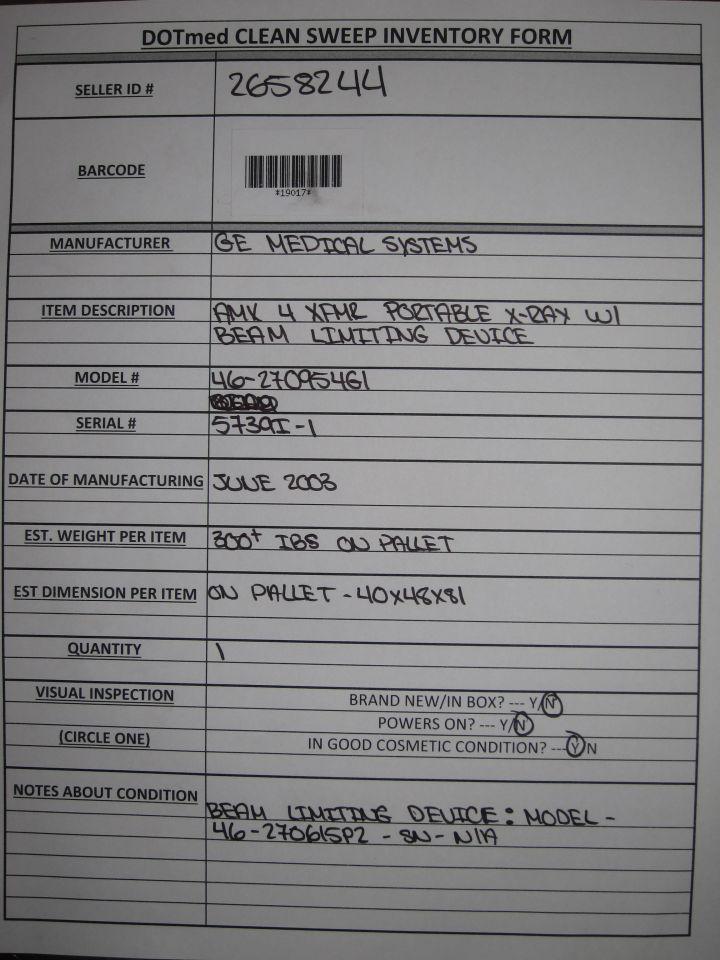 DOTmed CLEAN SWEEP INVENTORY FORM
SELLER ID # 2658244
BARCODE
*19017*
MANUFACTURER GE MEDICAL SYSTEMS
ITEM DESCRIPTION AMX 4 XFMR PORTABLE X-RAY W/
BEAM LIMITING DEVICE
MODEL # 46-270954G1
SERIAL # 57391-1
DATE OF MANUFACTURING JUNE 2003
EST. WEIGHT PER ITEM 300+ lBS ON PALLET
EST DIMENSION PER ITEM ON PALLET - 40X48X81
QUANTITY 1
VISUAL INSPECTION BRAND NEW/IN BOX? --- Y/N
POWERS ON? --- Y/N
(CIRCLE ONE) IN GOOD COSMETIC CONDITION? --- Y/N
NOTES ABOUT CONDITION
BEAM LIMITING DEVICE: MODEL -
46-270615P2 - SN - N/A